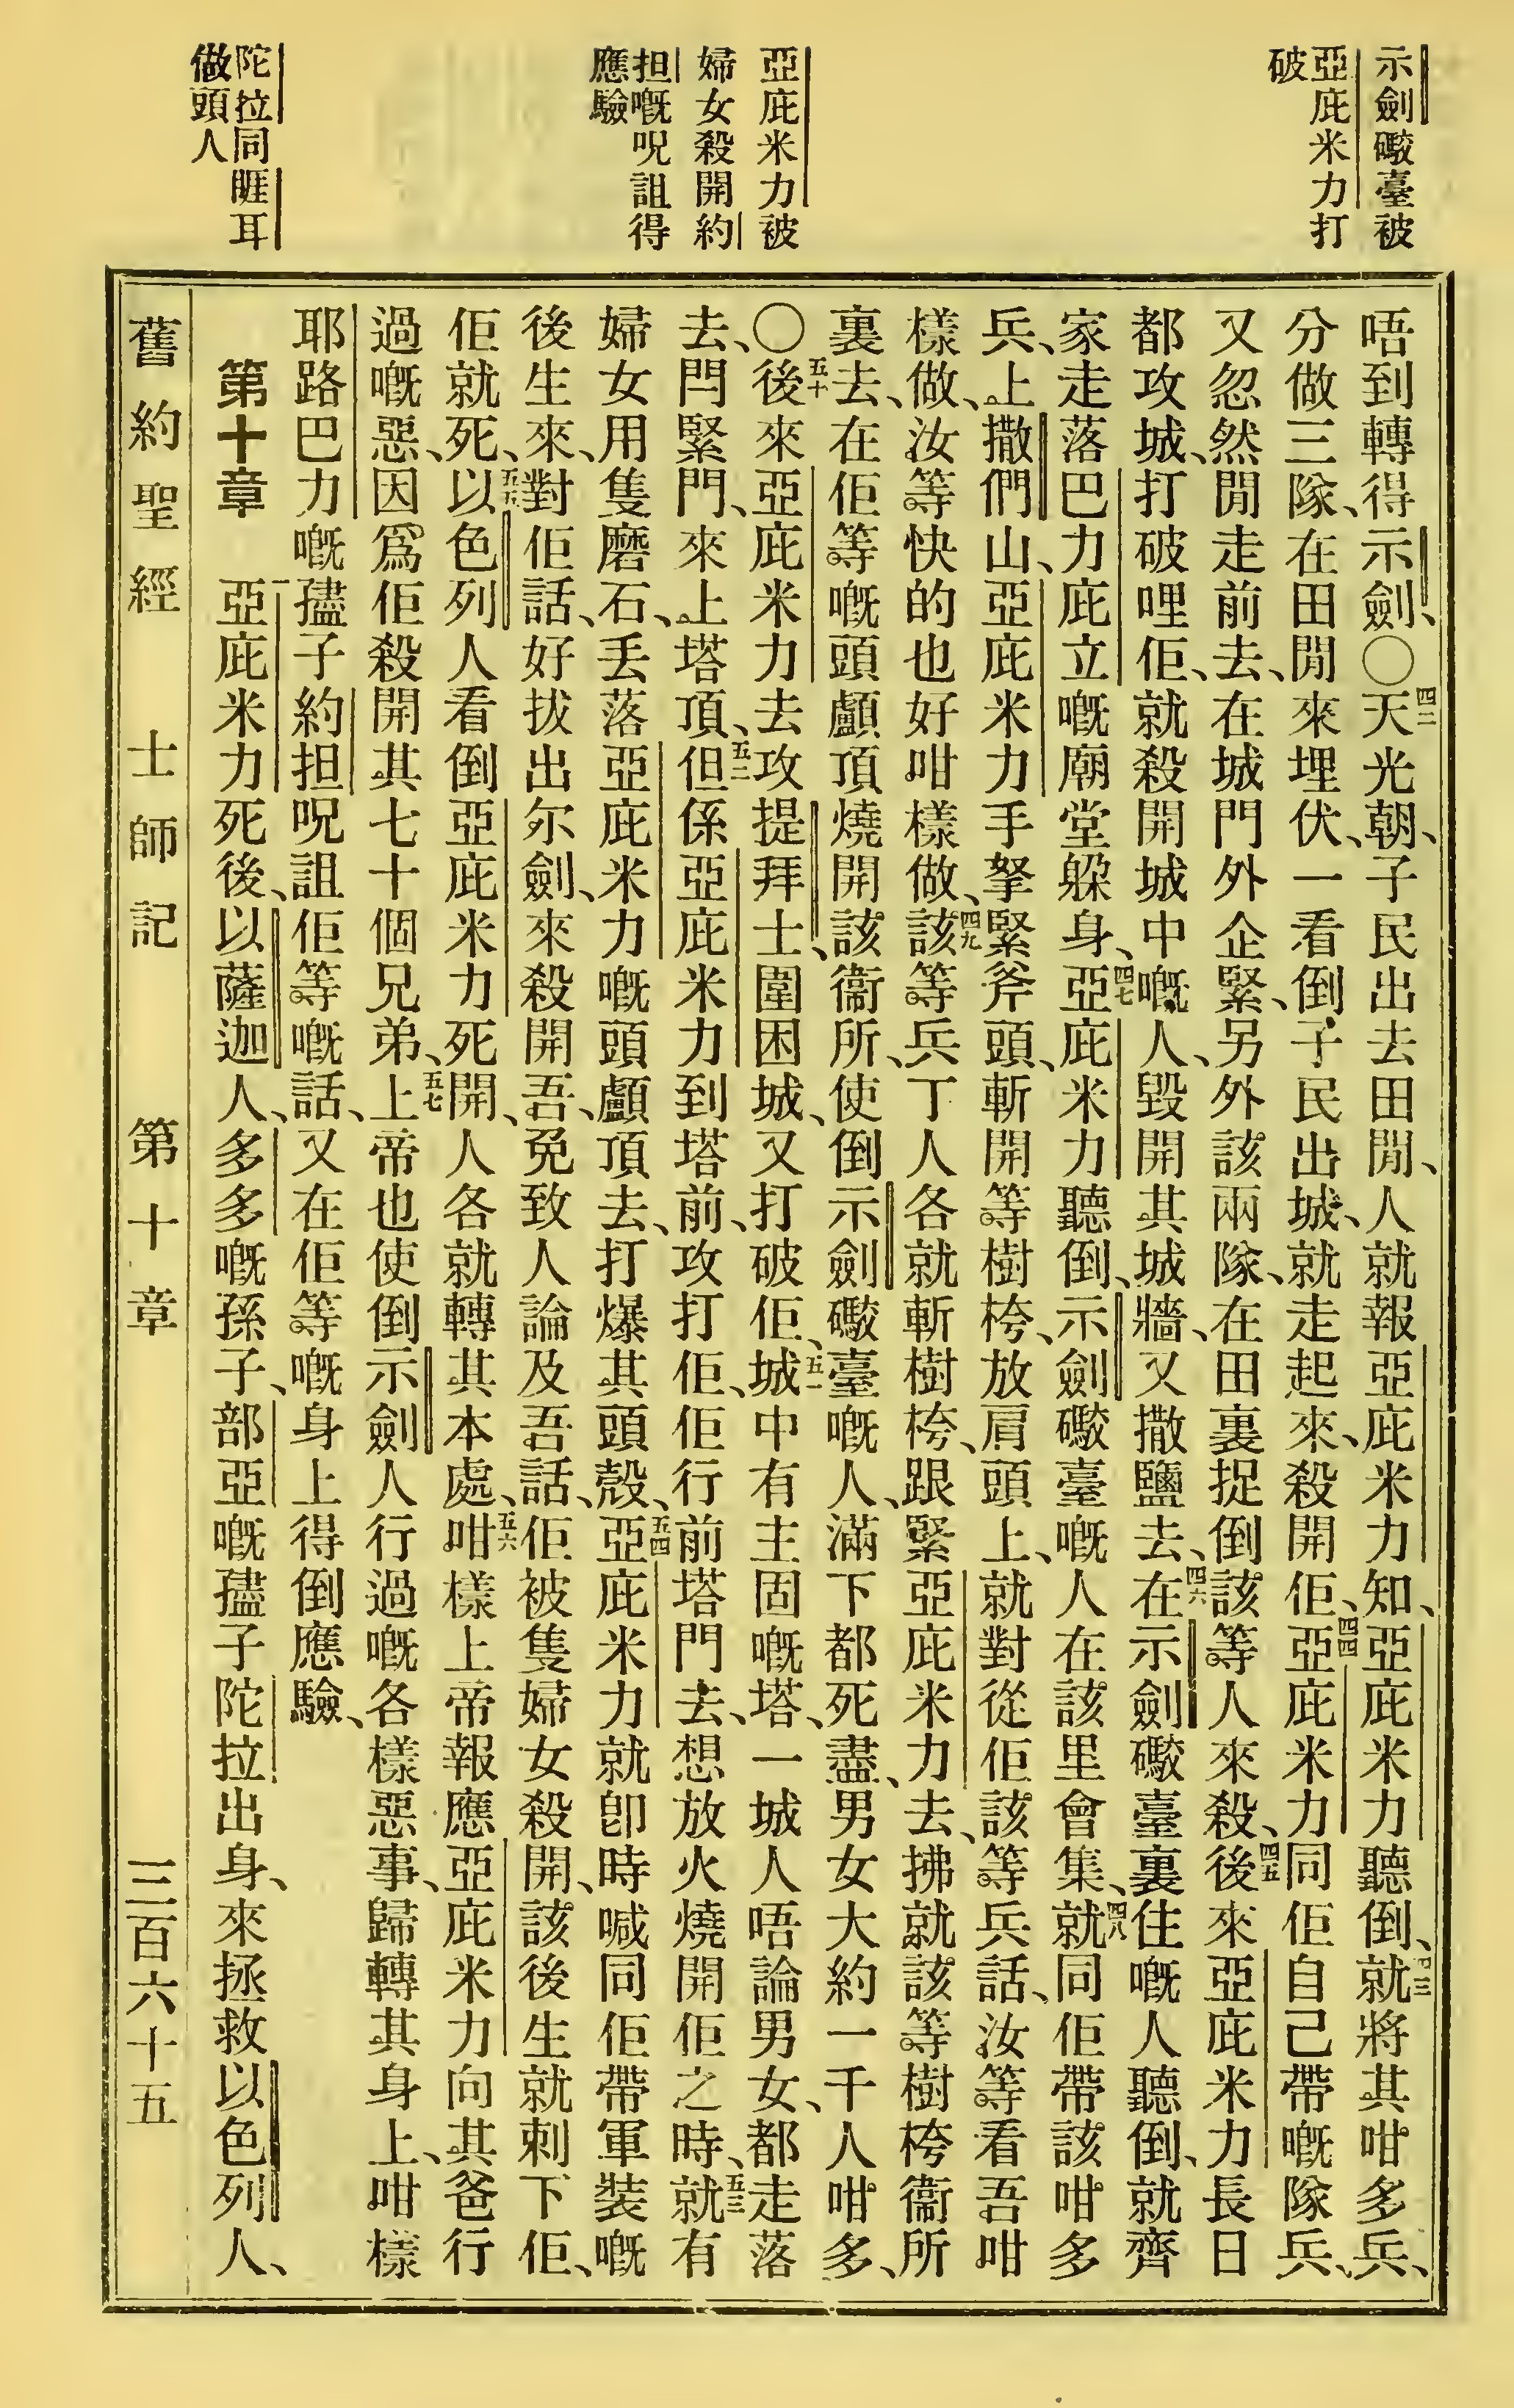 示劍礮臺被
亞庇米力打
破
亞庇米力被
婦女殺開約
担嘅呪詛得
應驗
陀拉同睚耳
做頭人
唔到轉得示劍、〇四二天光朝、子民出去田閒、人就報亞庇米力知、亞庇米力聽倒、四三就將其咁多兵、
分做三隊、在田閒來埋伏、一看倒子民出城、就走起來、殺開佢、四四亞庇米力同佢自己帶嘅隊兵、
又忽然閒走前去、在城門外企緊、另外該兩隊、在田裏捉倒該等人來殺、四五後來亞庇米力長日
都攻城、打破哩佢、就殺開城中嘅人、毀開其城牆、又撒鹽去、四六在示劍礮臺裏住嘅人聽倒、就齊
家走落巴力庇立嘅廟堂躲身、四七亞庇米力聽倒、示劍礮臺嘅人在該里會集、四八就同佢帶該咁多
兵、上撒們山、亞庇米力手拏緊斧頭、斬開等樹桍、放肩頭上、就對從佢該等兵話、汝等看吾咁
樣做、汝等快的也好咁樣做、四九該等兵丁人各就斬樹桍、跟緊亞庇米力去、拂就該等樹桍衞所
裏去、在佢等嘅頭顱頂燒開該衞所、使倒示劍礮臺嘅人、滿下都死盡、男女大約一千人咁多、
〇五十後來亞庇米力去攻提拜士、圍困城、又打破佢、五一城中有主固嘅塔、一城人唔論男女、都走落
去、閂緊門、來上塔頂、五二但係亞庇米力到塔前、攻打佢、佢行前塔門去、想放火燒開佢之時、五三就有
婦女用隻磨石、丢落亞庇米力嘅頭顱頂去、打爆其頭殼、五四亞庇米力就卽時喊同佢帶軍裝嘅
後生來、對佢話、好拔出尔劍、來殺開吾、免致人論及吾話、佢被隻婦女殺開、該後生就刺下佢、
佢就死、五五以色列人看倒亞庇米力死開、人各就轉其本處、五六咁樣上帝報應亞庇米力向其爸行
過嘅惡、因爲佢殺開其七十個兄弟、五七上帝也使倒示劍人行過嘅各樣惡事、歸轉其身上、咁樣
耶路巴力嘅孻子約担呪詛佢等嘅話、又在佢等嘅身上得倒應驗、
第十章 一亞庇米力死後、以薩迦人、多多嘅孫子、部亞嘅孻子陀拉出身、來拯救以色列人、
舊約聖經 士師記 第十章 三百六十五